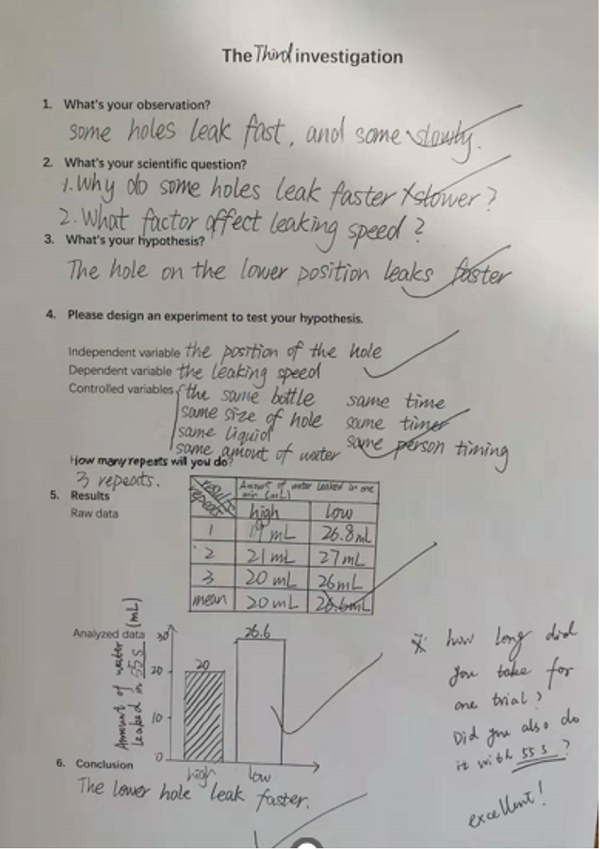 The Third investigation
1. What's your observation?
some holes leak fast, and some slowly.
2. What's your scientific question?
1. Why do some holes leak faster slower?
2. What factor affect leaking speed?
3. What's your hypothesis?
The hole on the lower position leaks faster
4. Please design an experiment to test your hypothesis.
Independent variable the position of the hole
Dependent variable the leaking speed
Controlled variables the same bottle same time
same size of hole same timer
same liquid same person timing
same amout of water
How many repeats will you do?
3 repeats.
5. Results
Raw data
results repeats Amount of water leaked in one min (mL)
high low
1 19 mL 26.8 mL
2 21 mL 27 mL
3 20 mL 26 mL
mean 20 mL 26.6 mL
Analyzed data
Amount of water leaked in 55 s (mL)
30
20
10
0
20
26.6
high low
※ how long did
you take for
one trial?
Did you also do
it with 55 s?
excellent!
6. Conclusion
The lower hole leak faster.